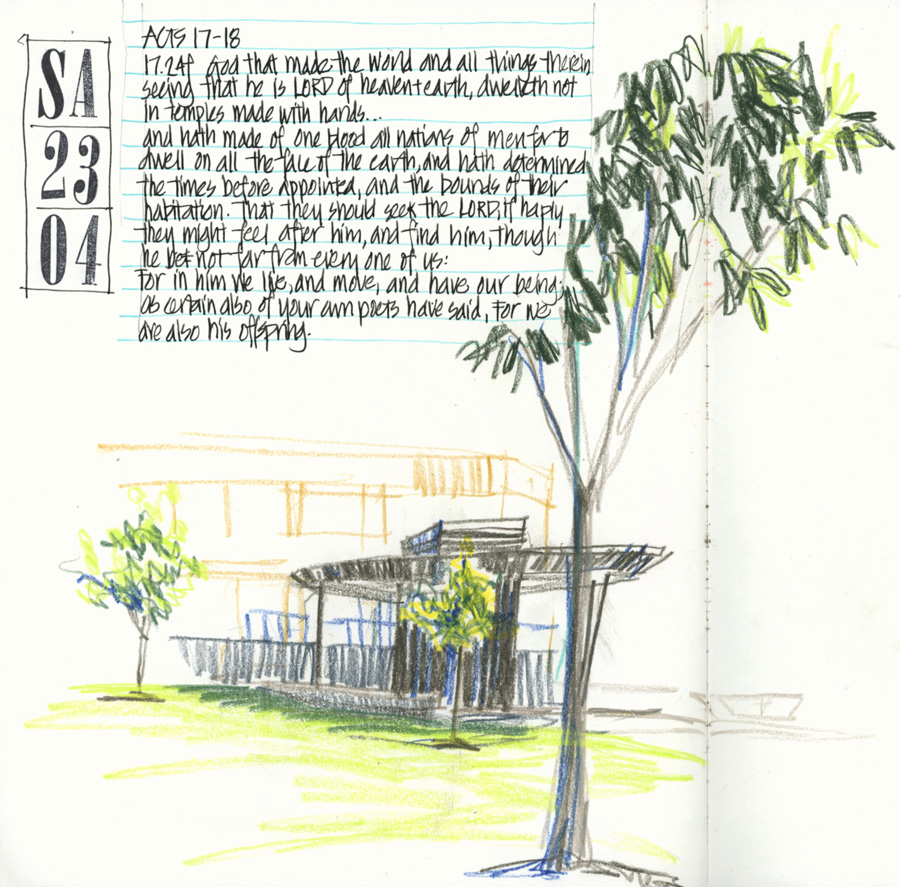 SA
23
04
ACTS 17-18
17.24f God that made the world and all things therein
seeing that he is LORD of heaven+earth, dwelleth not
in temples made with hands...
and hath made of one blood all nations of men for to
dwell on all the face of the earth, and hath determined
the times before appointed, and the bounds of their
habitation. That they should seek the LORD, if haply
they might feel after him, and find him, though
he be not far from every one of us:
For in him we live, and move, and have our being;
as certain also of your own poets have said, For we
are also his offspring.